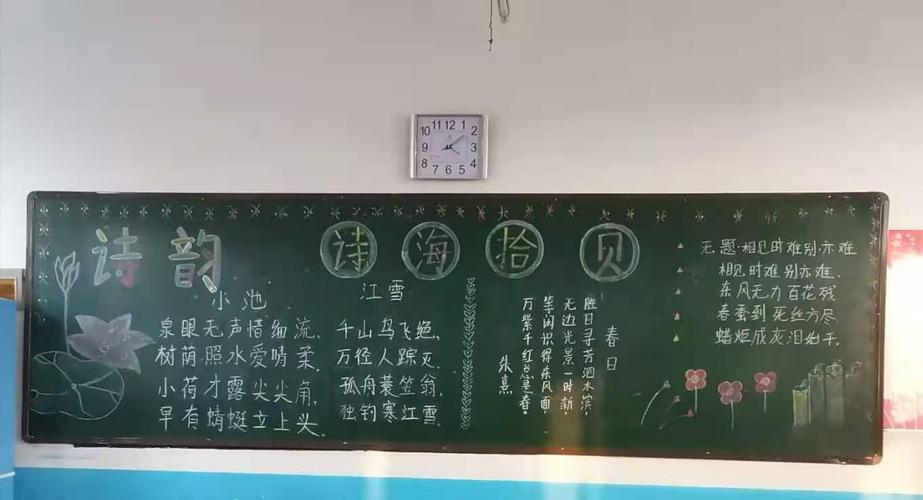 10 11 12 1 2
9 3
8 7 6 5 4
诗韵
诗海拾贝
小池
泉眼无声惜细流,
树荫照水爱晴柔.
小荷才露尖尖角,
早有蜻蜓立上头.
江雪
千山鸟飞绝,
万径人踪灭.
孤舟蓑笠翁,
独钓寒江雪.
春日
胜日寻芳泗水滨
无边光景一时新
等闲识得东风面
万紫千红总是春.
朱熹
无题·相见时难别亦难
相见时难别亦难.
东风无力百花残
春蚕到死丝方尽
蜡炬成灰泪始干.